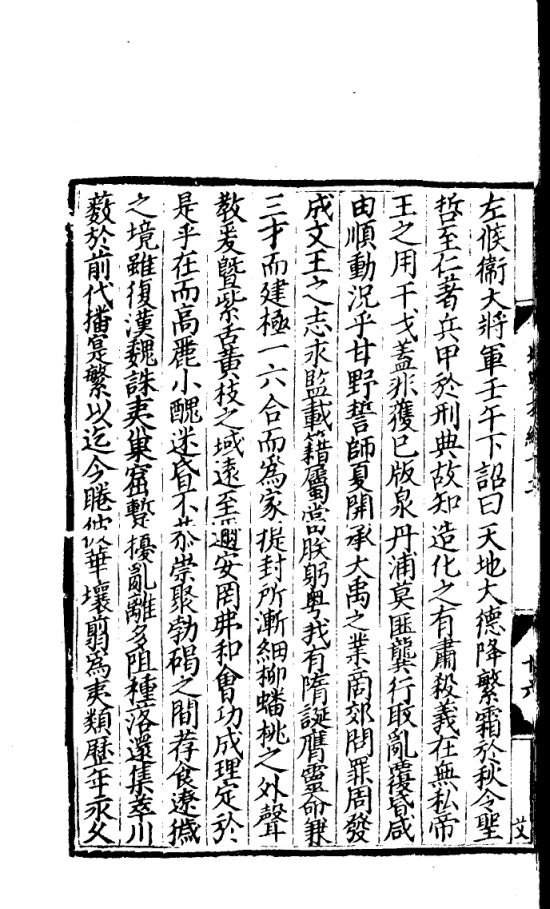 左候衞大將軍壬午下詔曰天地大德降繁霜於秋令聖
哲至仁著兵甲於刑典故知造化之有肅殺義在無私帝
王之用干戈蓋非獲已版泉丹浦莫匪龔行取亂覆昏咸
由順動況乎甘野誓師夏開承大禹之業商郊問罪周發
成文王之志永監載籍屬當朕躬粤我有隋誕膺靈命兼
三才而建極一六合而爲家提封所漸細柳蟠桃之外聲
教爰曁紫舌黃枝之域遠至邇安罔弗和會功成理定於
是乎在而高麗小醜迷昏不恭崇聚勃碣之間荐食遼獩
之境雖復漢魏誅夷巢窟蹔擾亂離多阻種落還集萃川
藪於前代播寔繁以迄今睠彼華壤翦爲夷類歷年永久
十六